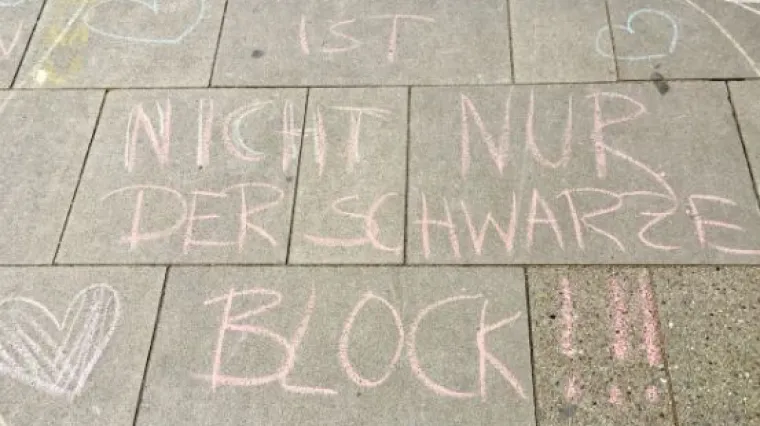 IST
NICHT NUR
DER SCHWARZE
BLOCK !!!